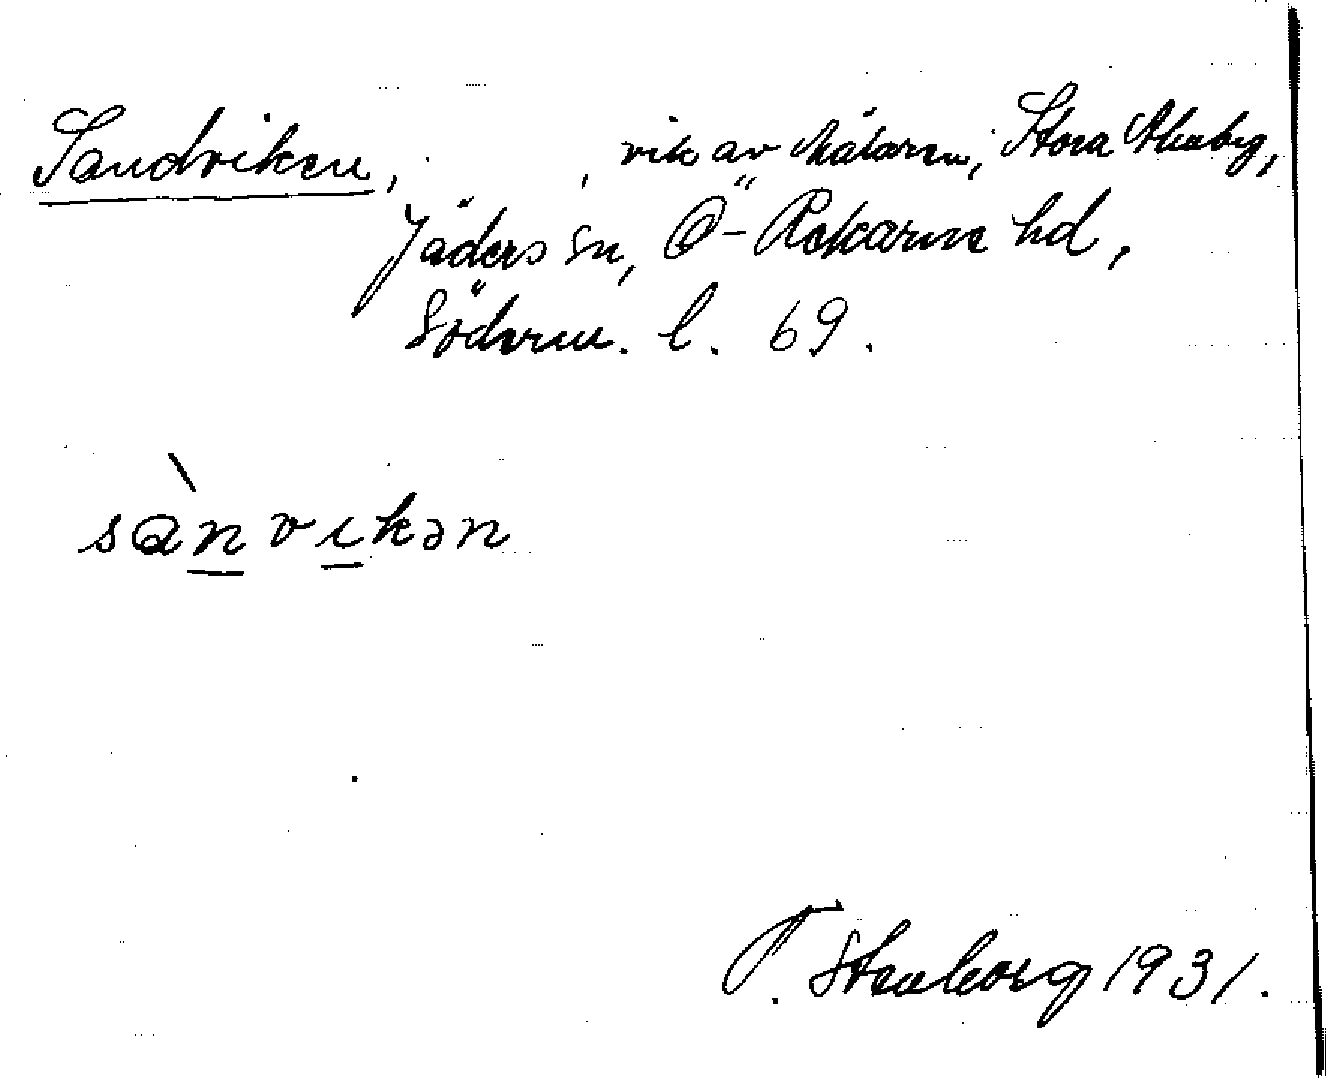 Sandviken, , vik av Mälaren, Stora Åkeby,
Jäders sn, Ö-Rekarne hd,
Söderm. l. 69.
sànvikən
T. Stenborg 1931.